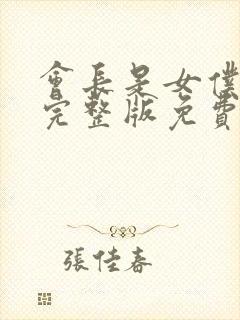 會長是女僕
完整版免費
張佳春